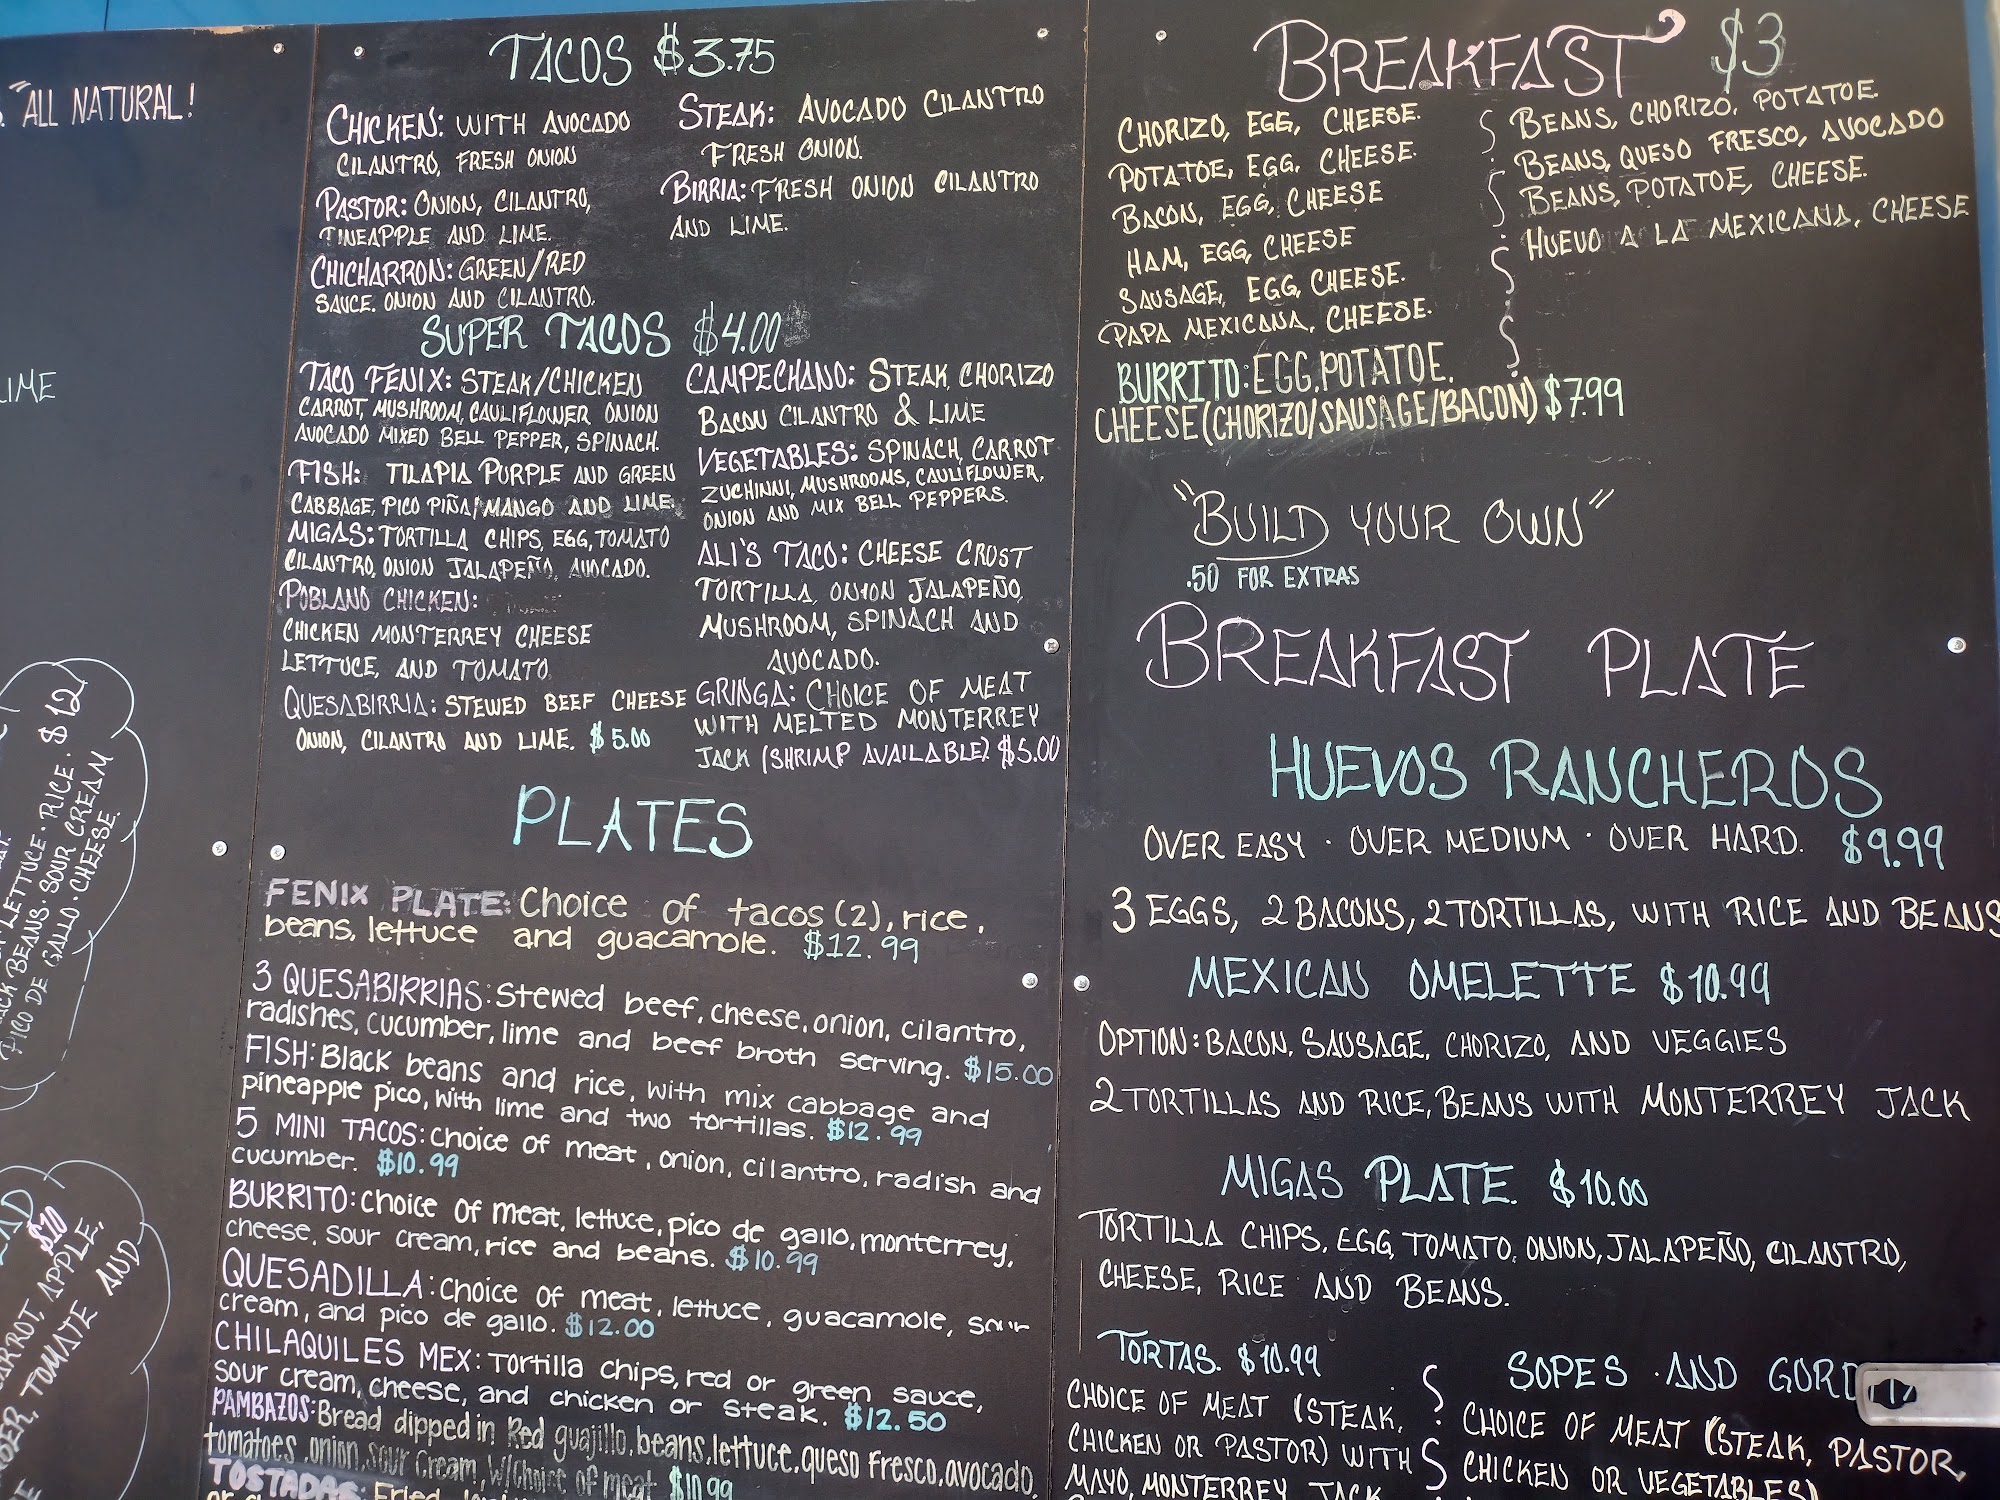 "ALL NATURAL!
LIME
LETTUCE · RICE · $12
BEANS · SOUR CREAM
PICO DE GALLO · CHEESE.
$10
CARROT, APPLE,
TOMATE AND
TACOS $3.75
CHICKEN: WITH AVOCADO
CILANTRO, FRESH ONION
PASTOR: ONION, CILANTRO,
PINEAPPLE AND LIME.
CHICHARRON: GREEN/RED
SAUCE. ONION AND CILANTRO.
STEAK: AVOCADO CILANTRO
FRESH ONION.
BIRRIA: FRESH ONION CILANTRO
AND LIME.
SUPER TACOS $4.00
TACO FENIX: STEAK/CHICKEN
CARROT, MUSHROOM, CAULIFLOWER ONION
AVOCADO MIXED BELL PEPPER, SPINACH.
FISH: TILAPIA PURPLE AND GREEN
CABBAGE, PICO PIÑA/MANGO AND LIME.
MIGAS: TORTILLA CHIPS, EGG, TOMATO
CILANTRO, ONION JALAPEÑO, AVOCADO.
POBLANO CHICKEN:
CHICKEN MONTERREY CHEESE
LETTUCE, AND TOMATO.
QUESABIRRIA: STEWED BEEF CHEESE
ONION, CILANTRO AND LIME. $5.00
CAMPECHANO: STEAK, CHORIZO
BACON CILANTRO & LIME
VEGETABLES: SPINACH, CARROT
ZUCHINNI, MUSHROOMS, CAULIFLOWER,
ONION AND MIX BELL PEPPERS.
ALI'S TACO: CHEESE CRUST
TORTILLA, ONION JALAPEÑO,
MUSHROOM, SPINACH AND
AVOCADO.
GRINGA: CHOICE OF MEAT
WITH MELTED MONTERREY
JACK (SHRIMP AVAILABLE) $5.00
PLATES
FENIX PLATE: Choice of tacos (2), rice,
beans, lettuce and guacamole. $12.99
3 QUESABIRRIAS: Stewed beef, cheese, onion, cilantro,
radishes, cucumber, lime and beef broth serving. $15.00
FISH: Black beans and rice, with mix cabbage and
pineapple pico, with lime and two tortillas. $12.99
5 MINI TACOS: choice of meat, onion, cilantro, radish and
cucumber. $10.99
BURRITO: choice of meat, lettuce, pico de gallo, monterrey,
cheese, sour cream, rice and beans. $10.99
QUESADILLA: Choice of meat, lettuce, guacamole, sour
cream, and pico de gallo. $12.00
CHILAQUILES MEX: Tortilla chips, red or green sauce,
sour cream, cheese, and chicken or steak. $12.50
PAMBAZOS: Bread dipped in Red guajillo, beans, lettuce, queso fresco, avocado,
tomatoes, onion, sour cream, W/choice of meat $10.99
TOSTADAS: Fried
BREAKFAST $3
CHORIZO, EGG, CHEESE.
POTATOE, EGG, CHEESE.
BACON, EGG, CHEESE
HAM, EGG, CHEESE
SAUSAGE, EGG, CHEESE.
PAPA MEXICANA, CHEESE.
BEANS, CHORIZO, POTATOE.
BEANS, QUESO FRESCO, AVOCADO
BEANS, POTATOE, CHEESE.
HUEVO A LA MEXICANA, CHEESE
BURRITO: EGG, POTATOE,
CHEESE (CHORIZO/SAUSAGE/BACON) $7.99
"BUILD YOUR OWN"
.50 FOR EXTRAS
BREAKFAST PLATE
HUEVOS RANCHEROS
OVER EASY · OVER MEDIUM · OVER HARD. $9.99
3 EGGS, 2 BACONS, 2 TORTILLAS, WITH RICE AND BEANS
MEXICAN OMELETTE $10.99
OPTION: BACON, SAUSAGE, CHORIZO, AND VEGGIES
2 TORTILLAS AND RICE, BEANS WITH MONTERREY JACK
MIGAS PLATE. $10.00
TORTILLA CHIPS, EGG, TOMATO, ONION, JALAPEÑO, CILANTRO,
CHEESE, RICE AND BEANS.
TORTAS. $10.99
CHOICE OF MEAT (STEAK,
CHICKEN OR PASTOR) WITH
MAYO, MONTERREY JACK
SOPES AND
CHOICE OF MEAT (STEAK, PASTOR,
CHICKEN OR VEGETABLES)